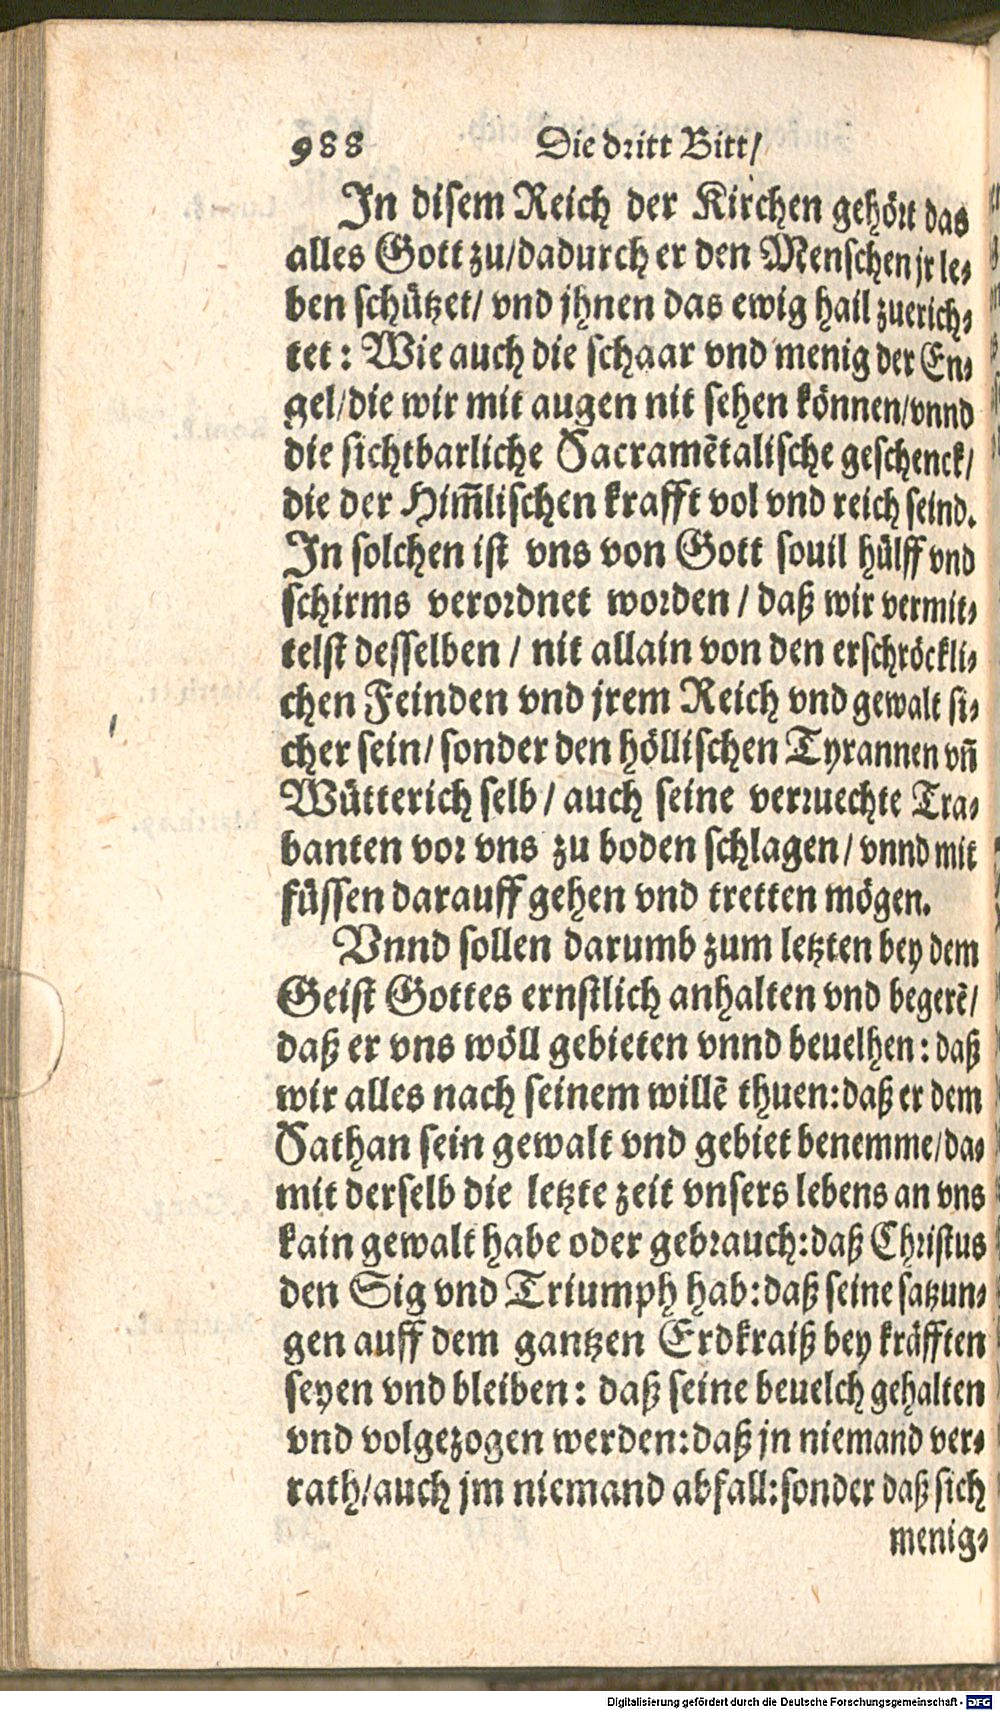 988 Die dritt Bitt/
In disem Reich der Kirchen gehört das
alles Gott zu/dadurch er den Menschen jr le-
ben schützet/ vnd jhnen das ewig hail zuerich-
tet: Wie auch die schaar vnd menig der En-
gel/die wir mit augen nit sehen können/vnnd
die sichtbarliche Sacramẽtalische geschenck/
die der Him̃lischen krafft vol vnd reich seind.
In solchen ist vns von Gott souil hülff vnd
schirms verordnet worden / daß wir vermit-
telst desselben / nit allain von den erschröckli-
chen Feinden vnd jrem Reich vnd gewalt si-
cher sein/ sonder den höllischen Tyrannen vñ
Wütterich selb / auch seine verruechte Tra-
banten vor vns zu boden schlagen / vnnd mit
füssen darauff gehen vnd tretten mögen.
Vnnd sollen darumb zum letzten bey dem
Geist Gottes ernstlich anhalten vnd begerẽ/
daß er vns wöll gebieten vnnd beuelhen: daß
wir alles nach seinem willẽ thuen:daß er dem
Sathan sein gewalt vnd gebiet benemme/da-
mit derselb die letzte zeit vnsers lebens an vns
kain gewalt habe oder gebrauch:daß Christus
den Sig vnd Triumph hab:daß seine satzun-
gen auff dem gantzen Erdkraiß bey kräfften
seyen vnd bleiben: daß seine beuelch gehalten
vnd volgezogen werden:daß jn niemand ver-
rath/auch jm niemand abfall:sonder daß sich
menig-
Digitalisierung gefördert durch die Deutsche Forschungsgemeinschaft - DFG